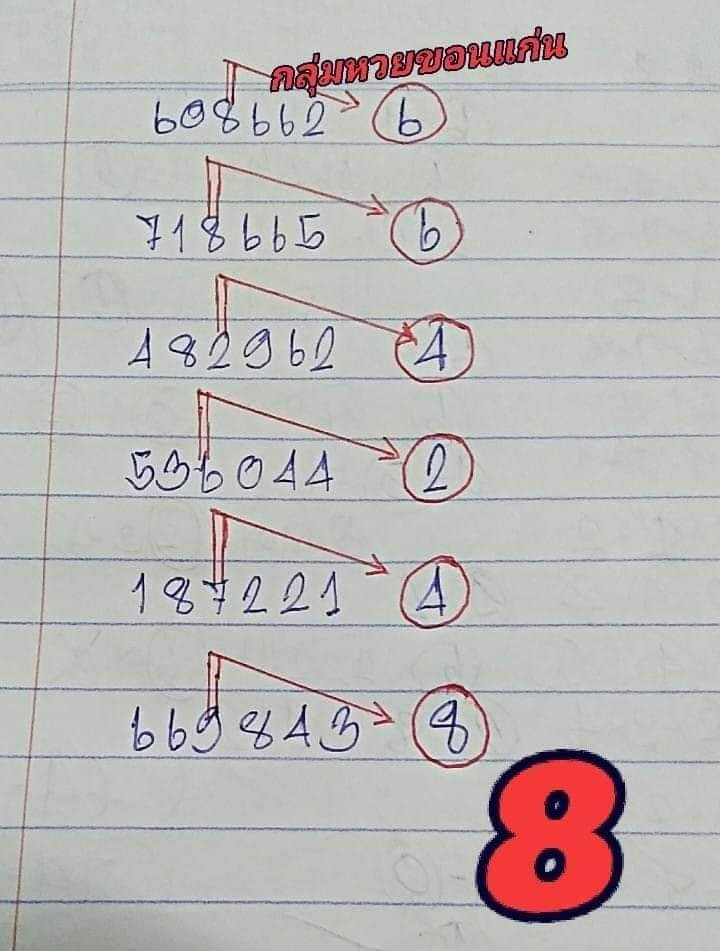 กลุ่มหวยขอนแก่น
608662 6
718665 6
482962 4
536044 2
187221 4
669843 8
8